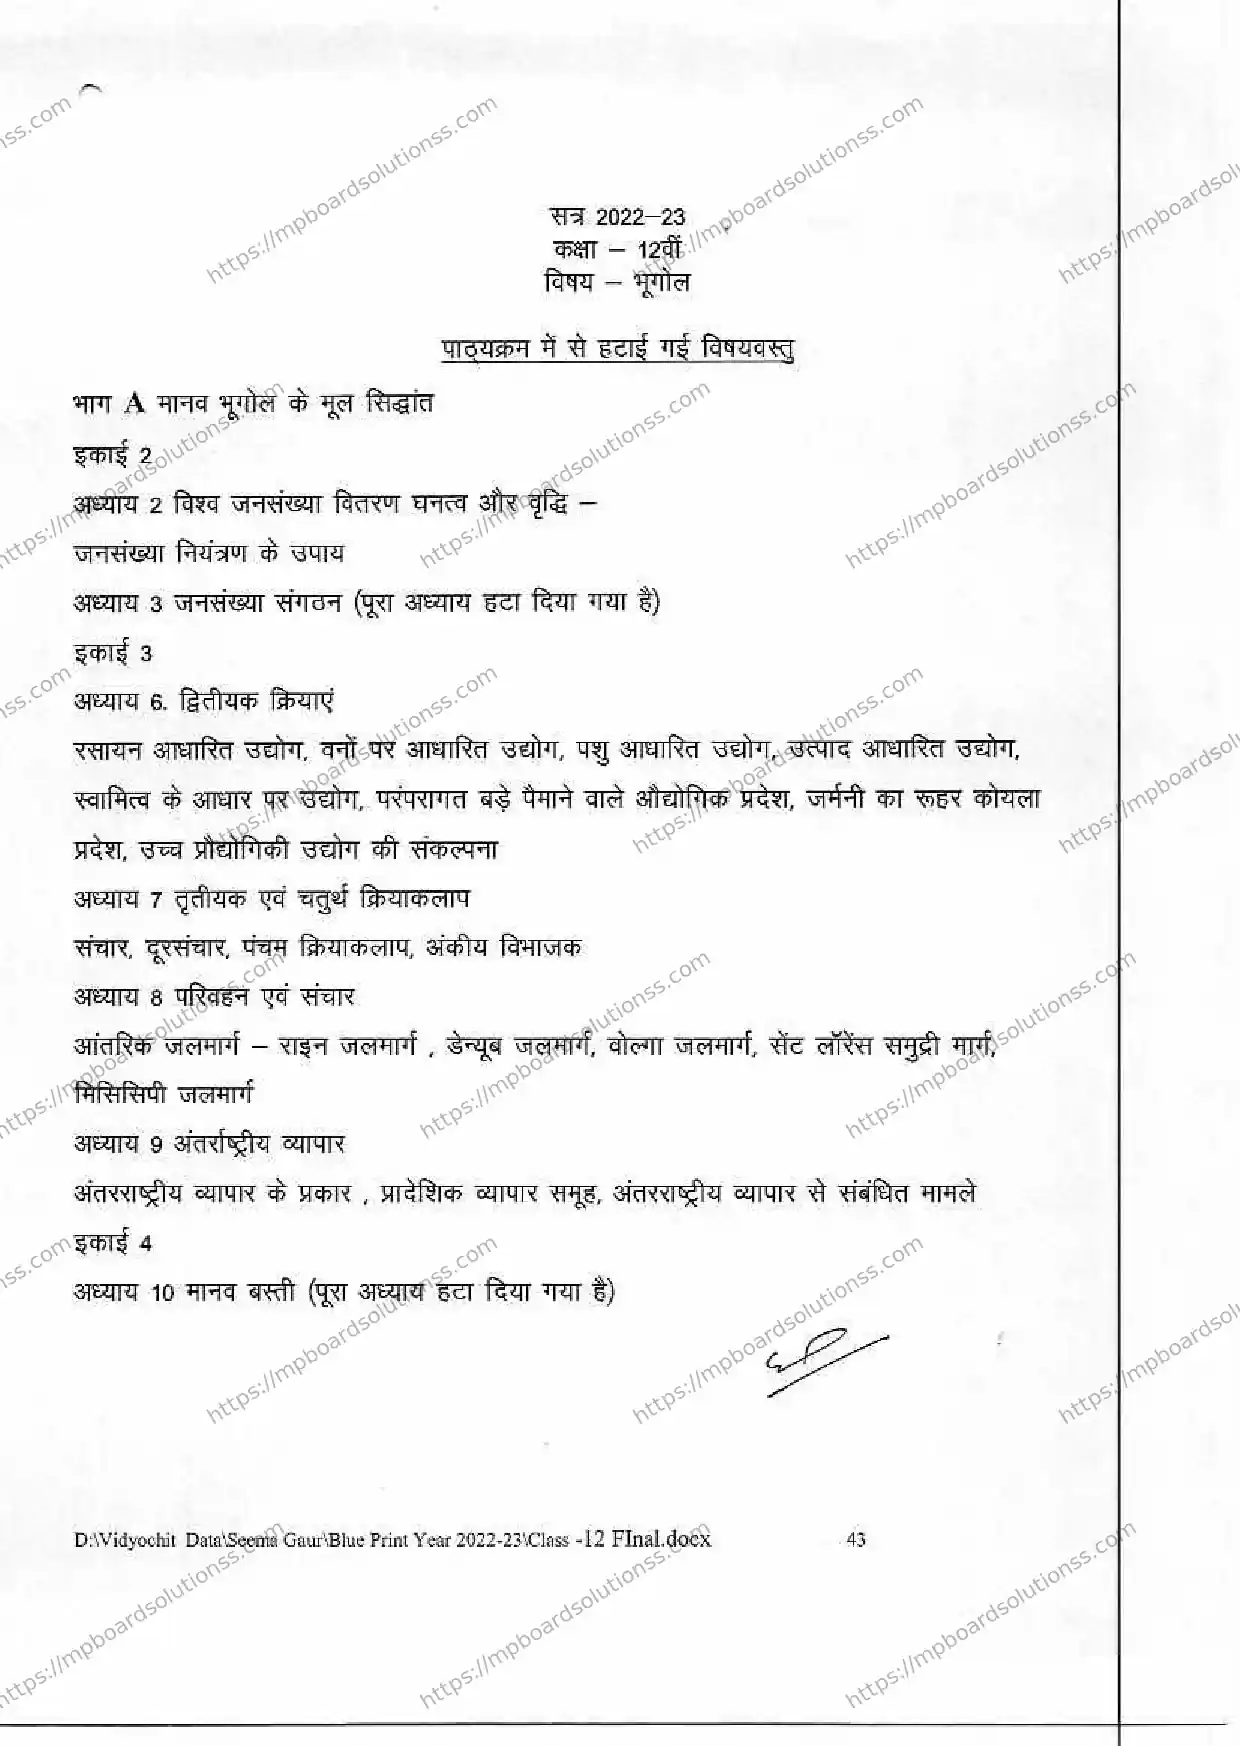 सत्र 2022–23
कक्षा – 12वीं
विषय – भूगोल
पाठ्यक्रम में से हटाई गई विषयवस्तु
भाग A मानव भूगोल के मूल सिद्धांत
इकाई 2
अध्याय 2 विश्व जनसंख्या वितरण घनत्व और वृद्धि –
जनसंख्या नियंत्रण के उपाय
अध्याय 3 जनसंख्या संगठन (पूरा अध्याय हटा दिया गया है)
इकाई 3
अध्याय 6. द्वितीयक क्रियाएं
रसायन आधारित उद्योग, वनों पर आधारित उद्योग, पशु आधारित उद्योग, उत्पाद आधारित उद्योग,
स्वामित्व के आधार पर उद्योग, परंपरागत बड़े पैमाने वाले औद्योगिक प्रदेश, जर्मनी का रूहर कोयला
प्रदेश, उच्च प्रौद्योगिकी उद्योग की संकल्पना
अध्याय 7 तृतीयक एवं चतुर्थ क्रियाकलाप
संचार, दूरसंचार, पंचम क्रियाकलाप, अंकीय विभाजक
अध्याय 8 परिवहन एवं संचार
आंतरिक जलमार्ग – राइन जलमार्ग , डेन्यूब जलमार्ग, वोल्गा जलमार्ग, सेंट लॉरेंस समुद्री मार्ग,
मिसिसिपी जलमार्ग
अध्याय 9 अंतर्राष्ट्रीय व्यापार
अंतरराष्ट्रीय व्यापार के प्रकार , प्रादेशिक व्यापार समूह, अंतरराष्ट्रीय व्यापार से संबंधित मामले
इकाई 4
अध्याय 10 मानव बस्ती (पूरा अध्याय हटा दिया गया है)
D:\Vidyochit Data\Seema Gaur\Blue Print Year 2022-23\Class -12 FInal.docx 43
https://mpboardsolutionss.com